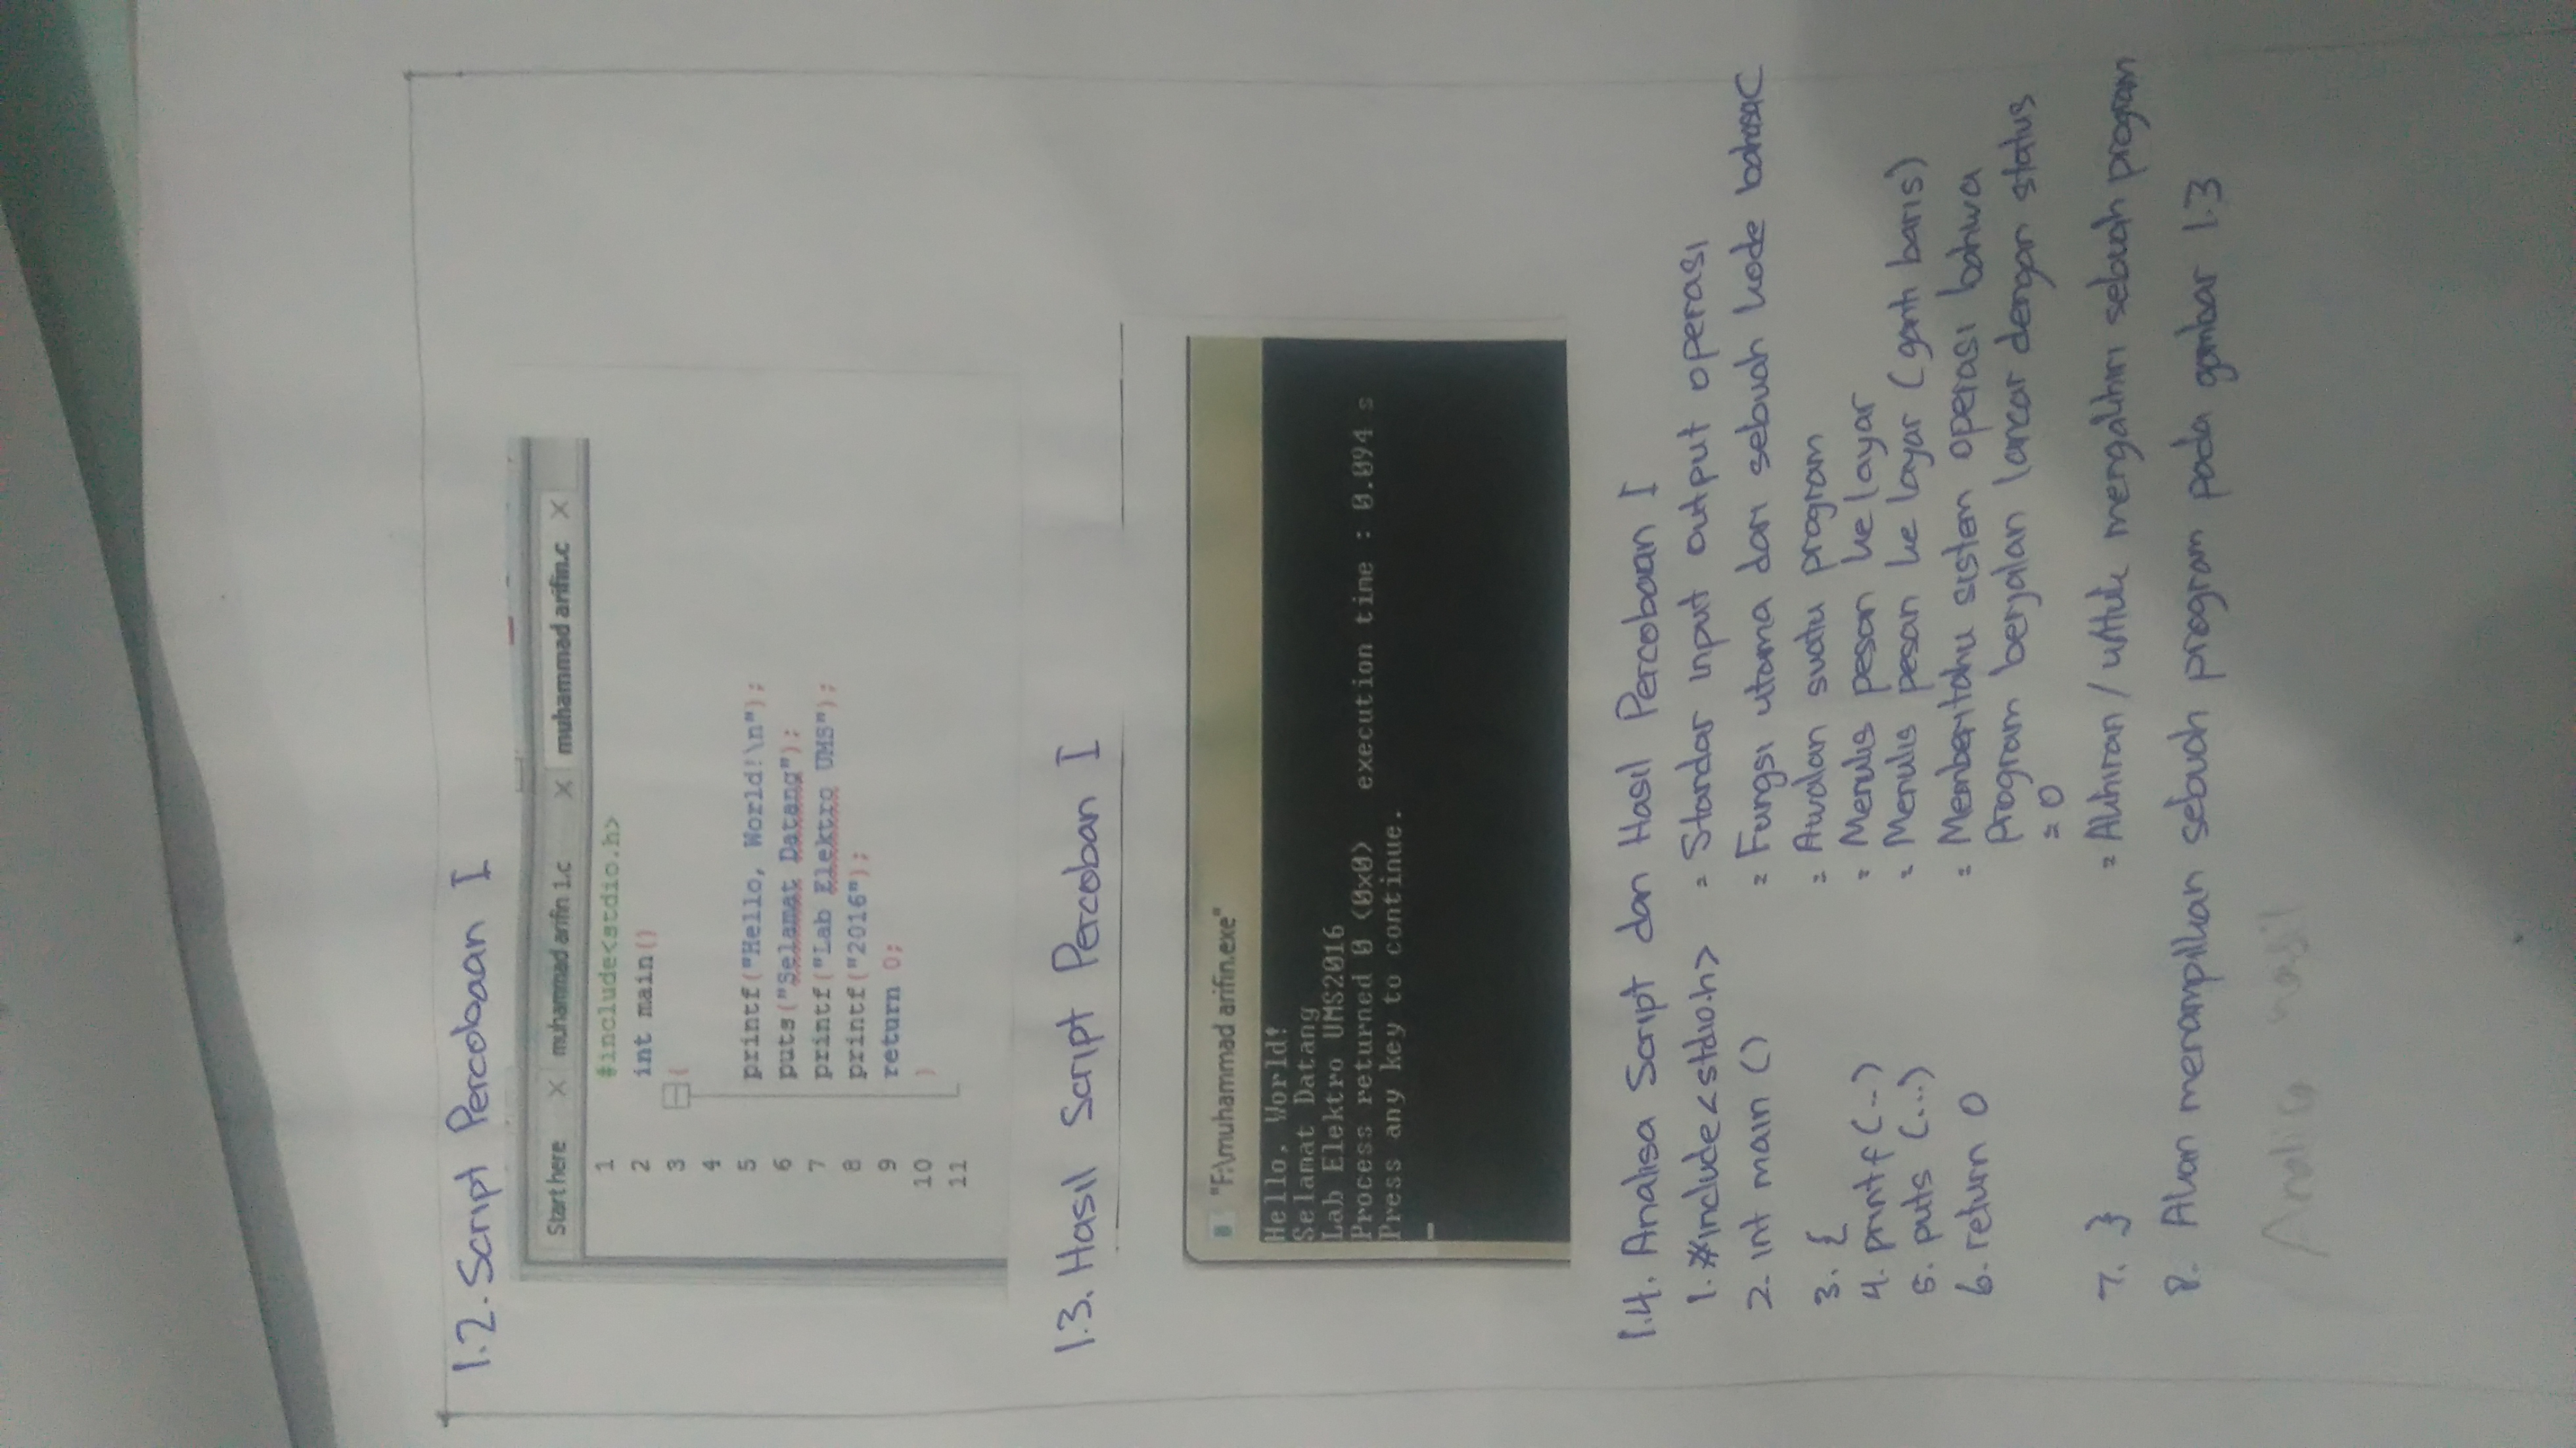 1.2. Script Percobaan I
Start here X muhammad arifin 1.c X muhammad arifin.c X
1 #include<stdio.h>
2 int main()
3 {
4
5 printf("Hello, World!\n");
6 puts("Selamat Datang");
7 printf("Lab Elektro UMS");
8 printf("2016");
9 return 0;
10 }
11
1.3. Hasil Script Percoban I
"F:\muhammad arifin.exe"
Hello, World!
Selamat Datang
Lab Elektro UMS2016
Process returned 0 (0x0) execution time : 0.094 s
Press any key to continue.
1.4. Analisa Script dan Hasil Percobaan I
1. #include<stdio.h> = Standar input output operasi
2. int main () = Fungsi utama dari sebuah kode bahasa C
3. { = Awalan suatu program
4. printf (...) = Menulis pesan ke layar
5. puts (...) = Menulis pesan ke layar (ganti baris)
6. return 0 = Memberitahu sistem operasi bahwa
program berjalan lancar dengan status
= 0
7. } = Akhiran / untuk mengakhiri sebuah program
8. Akan menampilkan sebuah program pada gambar 1.3